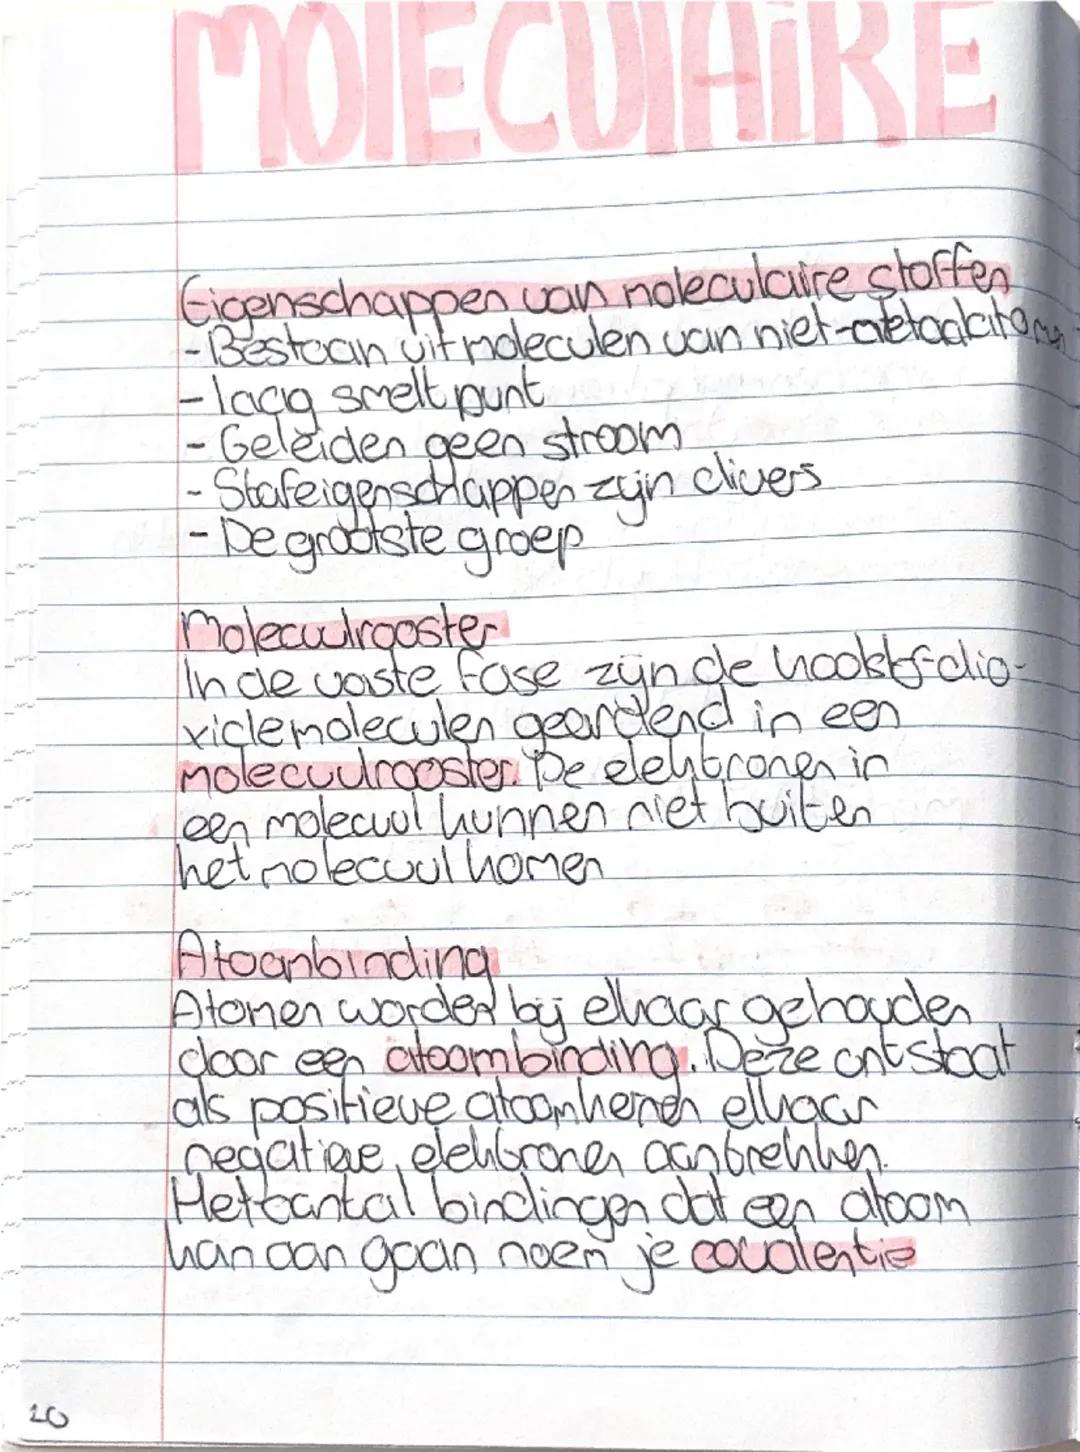 MOlECUlAiRE
Eigenschappen van moleculaire stoffen
- Bestaan uit moleculen van niet-metaalatomen
- laag smeltpunt
- Geleiden geen stroom
- Stofeigenschappen zijn divers
- De grootste groep
Molecuulrooster
In de vaste fase zijn de koolstofdio-
xidemoleculen geordend in een
molecuulrooster. De elektronen in
een molecuul kunnen niet buiten
het molecuul komen
Atoombinding
Atomen worden bij elkaar gehouden
door een atoombinding. Deze ontstaat
als positieve atoomkernen elkaar
negatieve elektronen aantrekken.
Het aantal bindingen dat een atoom
kan aan gaan noem je covalentie
20